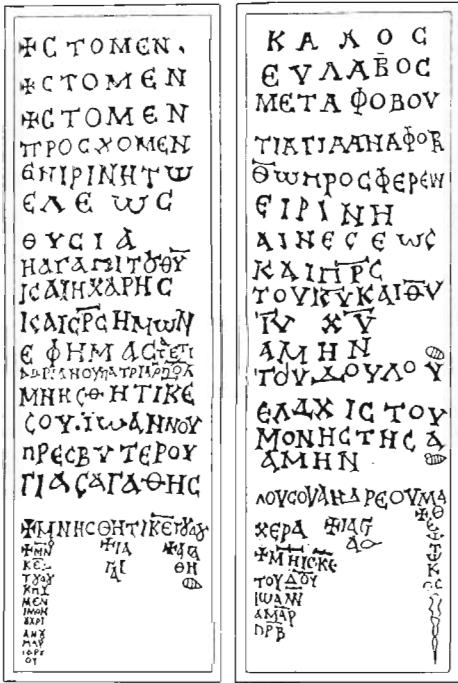 ✠ϹΤΟΜΕΝ.
✠ϹΤΟΜΕΝ
✠ϹΤΟΜΕΝ
ΠΡΟϹΧΟΜΕΝ
ΕΝΙΡΙΝΗΤΩ
ΕΛΕΩϹ
ΘΥϹΙΑ
ΗΑΓΑΠΙΤȢΘΥ
ΚΑΙΗΧΑΡΗϹ
ΚΑΙϹΡϹΗΜΩΝ
ΕΦΗΜΑϹ
ΜΝΗϹΘΗΤΙΚΕ
ϹΟΥ.ΙΩΑΝΝΟΥ
ΠΡΕϹΒΥΤΕΡΟΥ
ΓΙΑϹΑΓΑΘΗϹ
✠ΜΝΗϹΘΗΤΙΚΕΤȢΔȢ
✠ΜΝ
ΚΕ
ΤȢΔȢ
ΜΕΝ
ΟΥ
✠ΙΑ
✠ΑΓΑ
ΘΗ
ΚΑΛΟϹ
ΕΥΛΑΒΟϹ
ΜΕΤΑΦΟΒΟΥ
ΤΙΑΓΙΑΑΝΑΦΟΡ
ΘΩΠΡΟϹΦΕΡΕΙΝ
ΕΙΡΙΝΗ
ΑΙΝΕϹΕΩϹ
ΚΑΙΠΡϹ
ΤΟΥΚΥΚΑΙΘΥ
ΙΥ ΧΥ
ΑΜΗΝ
ΤΟΥΔΟΥΛΟΥ
ΕΛΑΧΙϹΤΟΥ
ΜΟΝΗϹΤΗϹΑ
ΑΜΗΝ
ΛΟΥϹΟΥΑΝΔΡΕΟΥΜΑ
ΧΕΡΑ
✠ΜΗΙϹΚΕ
ΤΟΥΔΟΥ
ΙΩΑΝ
ΑΜΑΡ
ΠΡΒ
✠ΙΑϹ
✠Θ
Ε
Τ
Κ